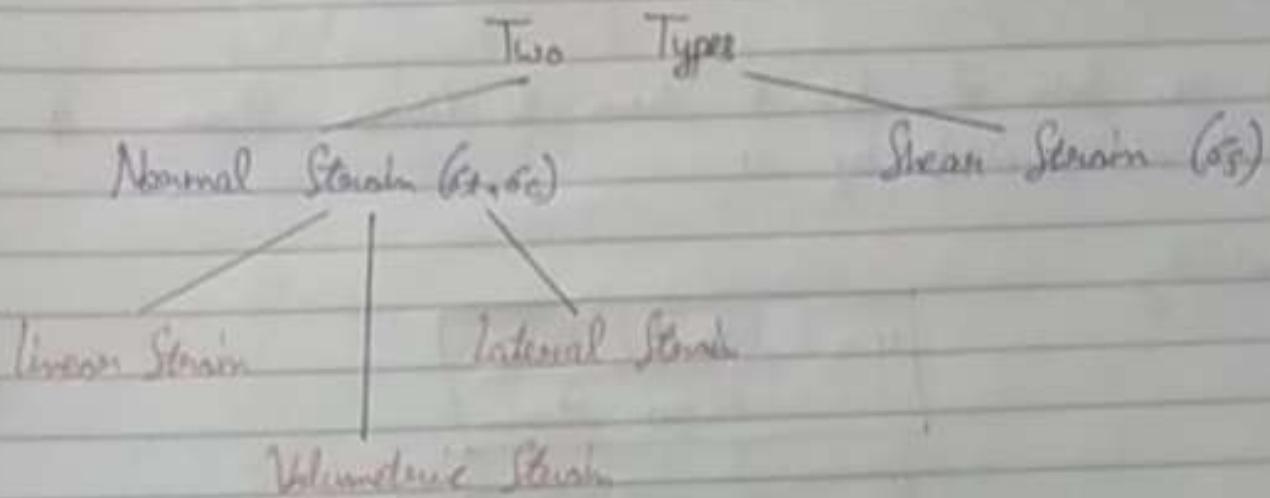 Two Types
Normal Strain (σt, σc) Shear Strain (σs)
Linear Strain Lateral Strain
Volumetric Strain